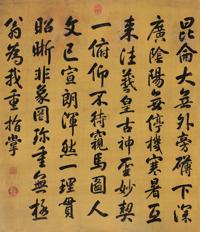 昆侖大無外旁礴下深
廣陰陽無停機寒暑互
来往羲皇古神聖妙契
一俯仰不待窺馬圖人
文已宣朗渾然一理貫
昭晰非象罔珎重無極
翁為我重指掌